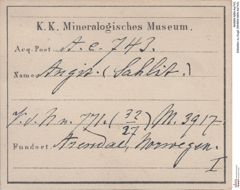 K. K. Mineralogisches Museum.
Acq. Post A. c. 743.
Name Augit. (Sahlit.)
771. (32/27) M. 3917
Fundort Arendal, Norwegen.
I